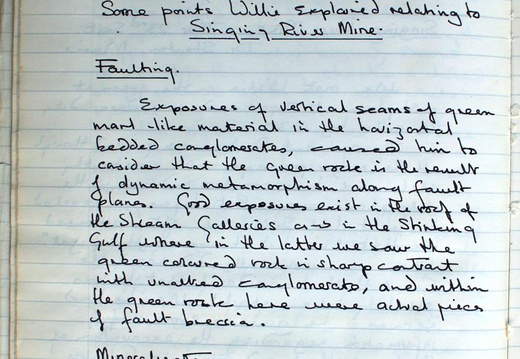 Some points Willie explained relating to
Singing River Mine.
Faulting.
Exposures of vertical seams of green
marl-like material in the horizontal
bedded conglomerates, caused him to
consider that the green rock is the result
of dynamic metamorphism along fault
planes. Good exposures exist in the roof of
the Stream Galleries and in the Stinking
Gulf where in the latter we saw the
green coloured rock in sharp contrast
with unaltered conglomerate, and within
the green rock here were actual pieces
of fault breccia.